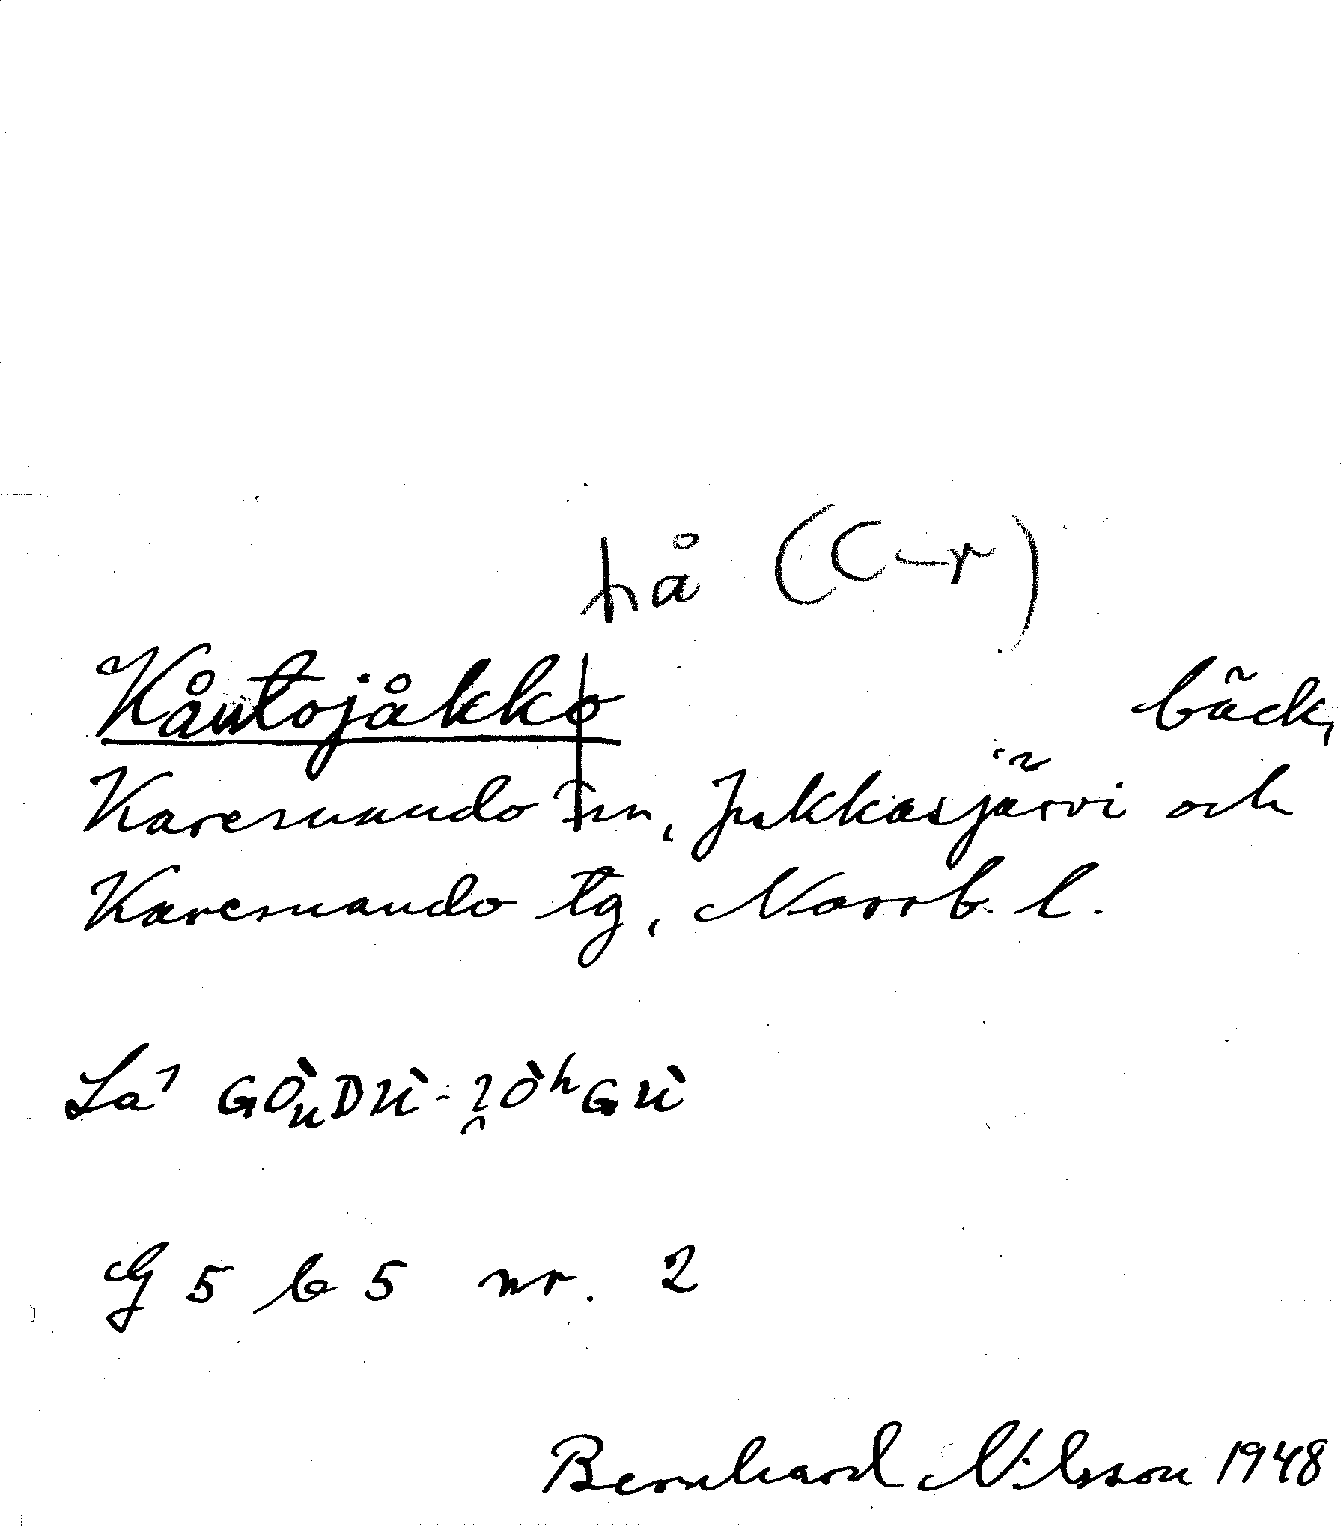 hå (C-r)
Kåutojåkko bäck,
Karesuando sn, Jukkasjärvi och
Karesuando tg, Norrb. l.
La'
G 5 b 5 nr. 2
Bernhard Nilsson 1948